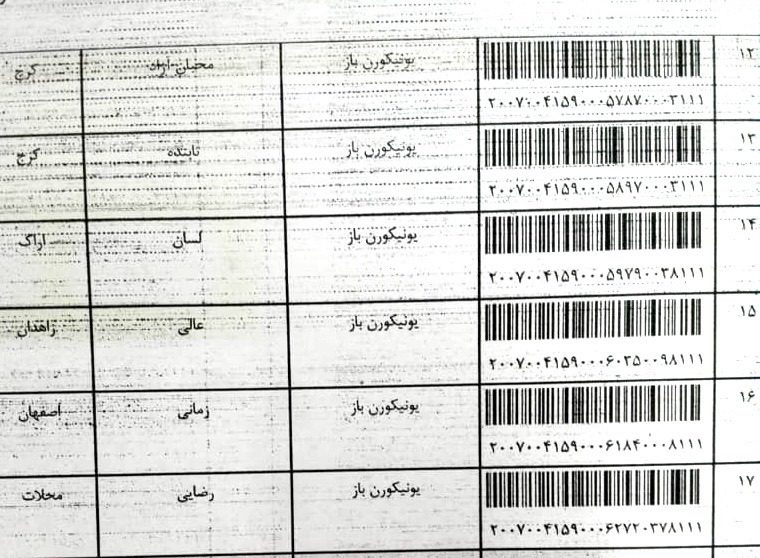 ۱۲
۲۰۰۷۰۰۴۱۵۹۰۰۰۵۷۸۷۰۰۰۳۱۱۱
یونیکورن باز
محبان اراک
کرج
۱۳
۲۰۰۷۰۰۴۱۵۹۰۰۰۵۸۹۷۰۰۰۳۱۱۱
یونیکورن باز
تابنده
کرج
۱۴
۲۰۰۷۰۰۴۱۵۹۰۰۰۵۹۷۹۰۰۳۸۱۱۱
یونیکورن باز
لسان
اراک
۱۵
۲۰۰۷۰۰۴۱۵۹۰۰۰۶۰۳۵۰۰۹۸۱۱۱
یونیکورن باز
عالی
زاهدان
۱۶
۲۰۰۷۰۰۴۱۵۹۰۰۰۶۱۸۴۰۰۰۸۱۱۱
یونیکورن باز
زمانی
اصفهان
۱۷
۲۰۰۷۰۰۴۱۵۹۰۰۰۶۲۷۲۰۳۷۸۱۱۱
یونیکورن باز
رضایی
محلات